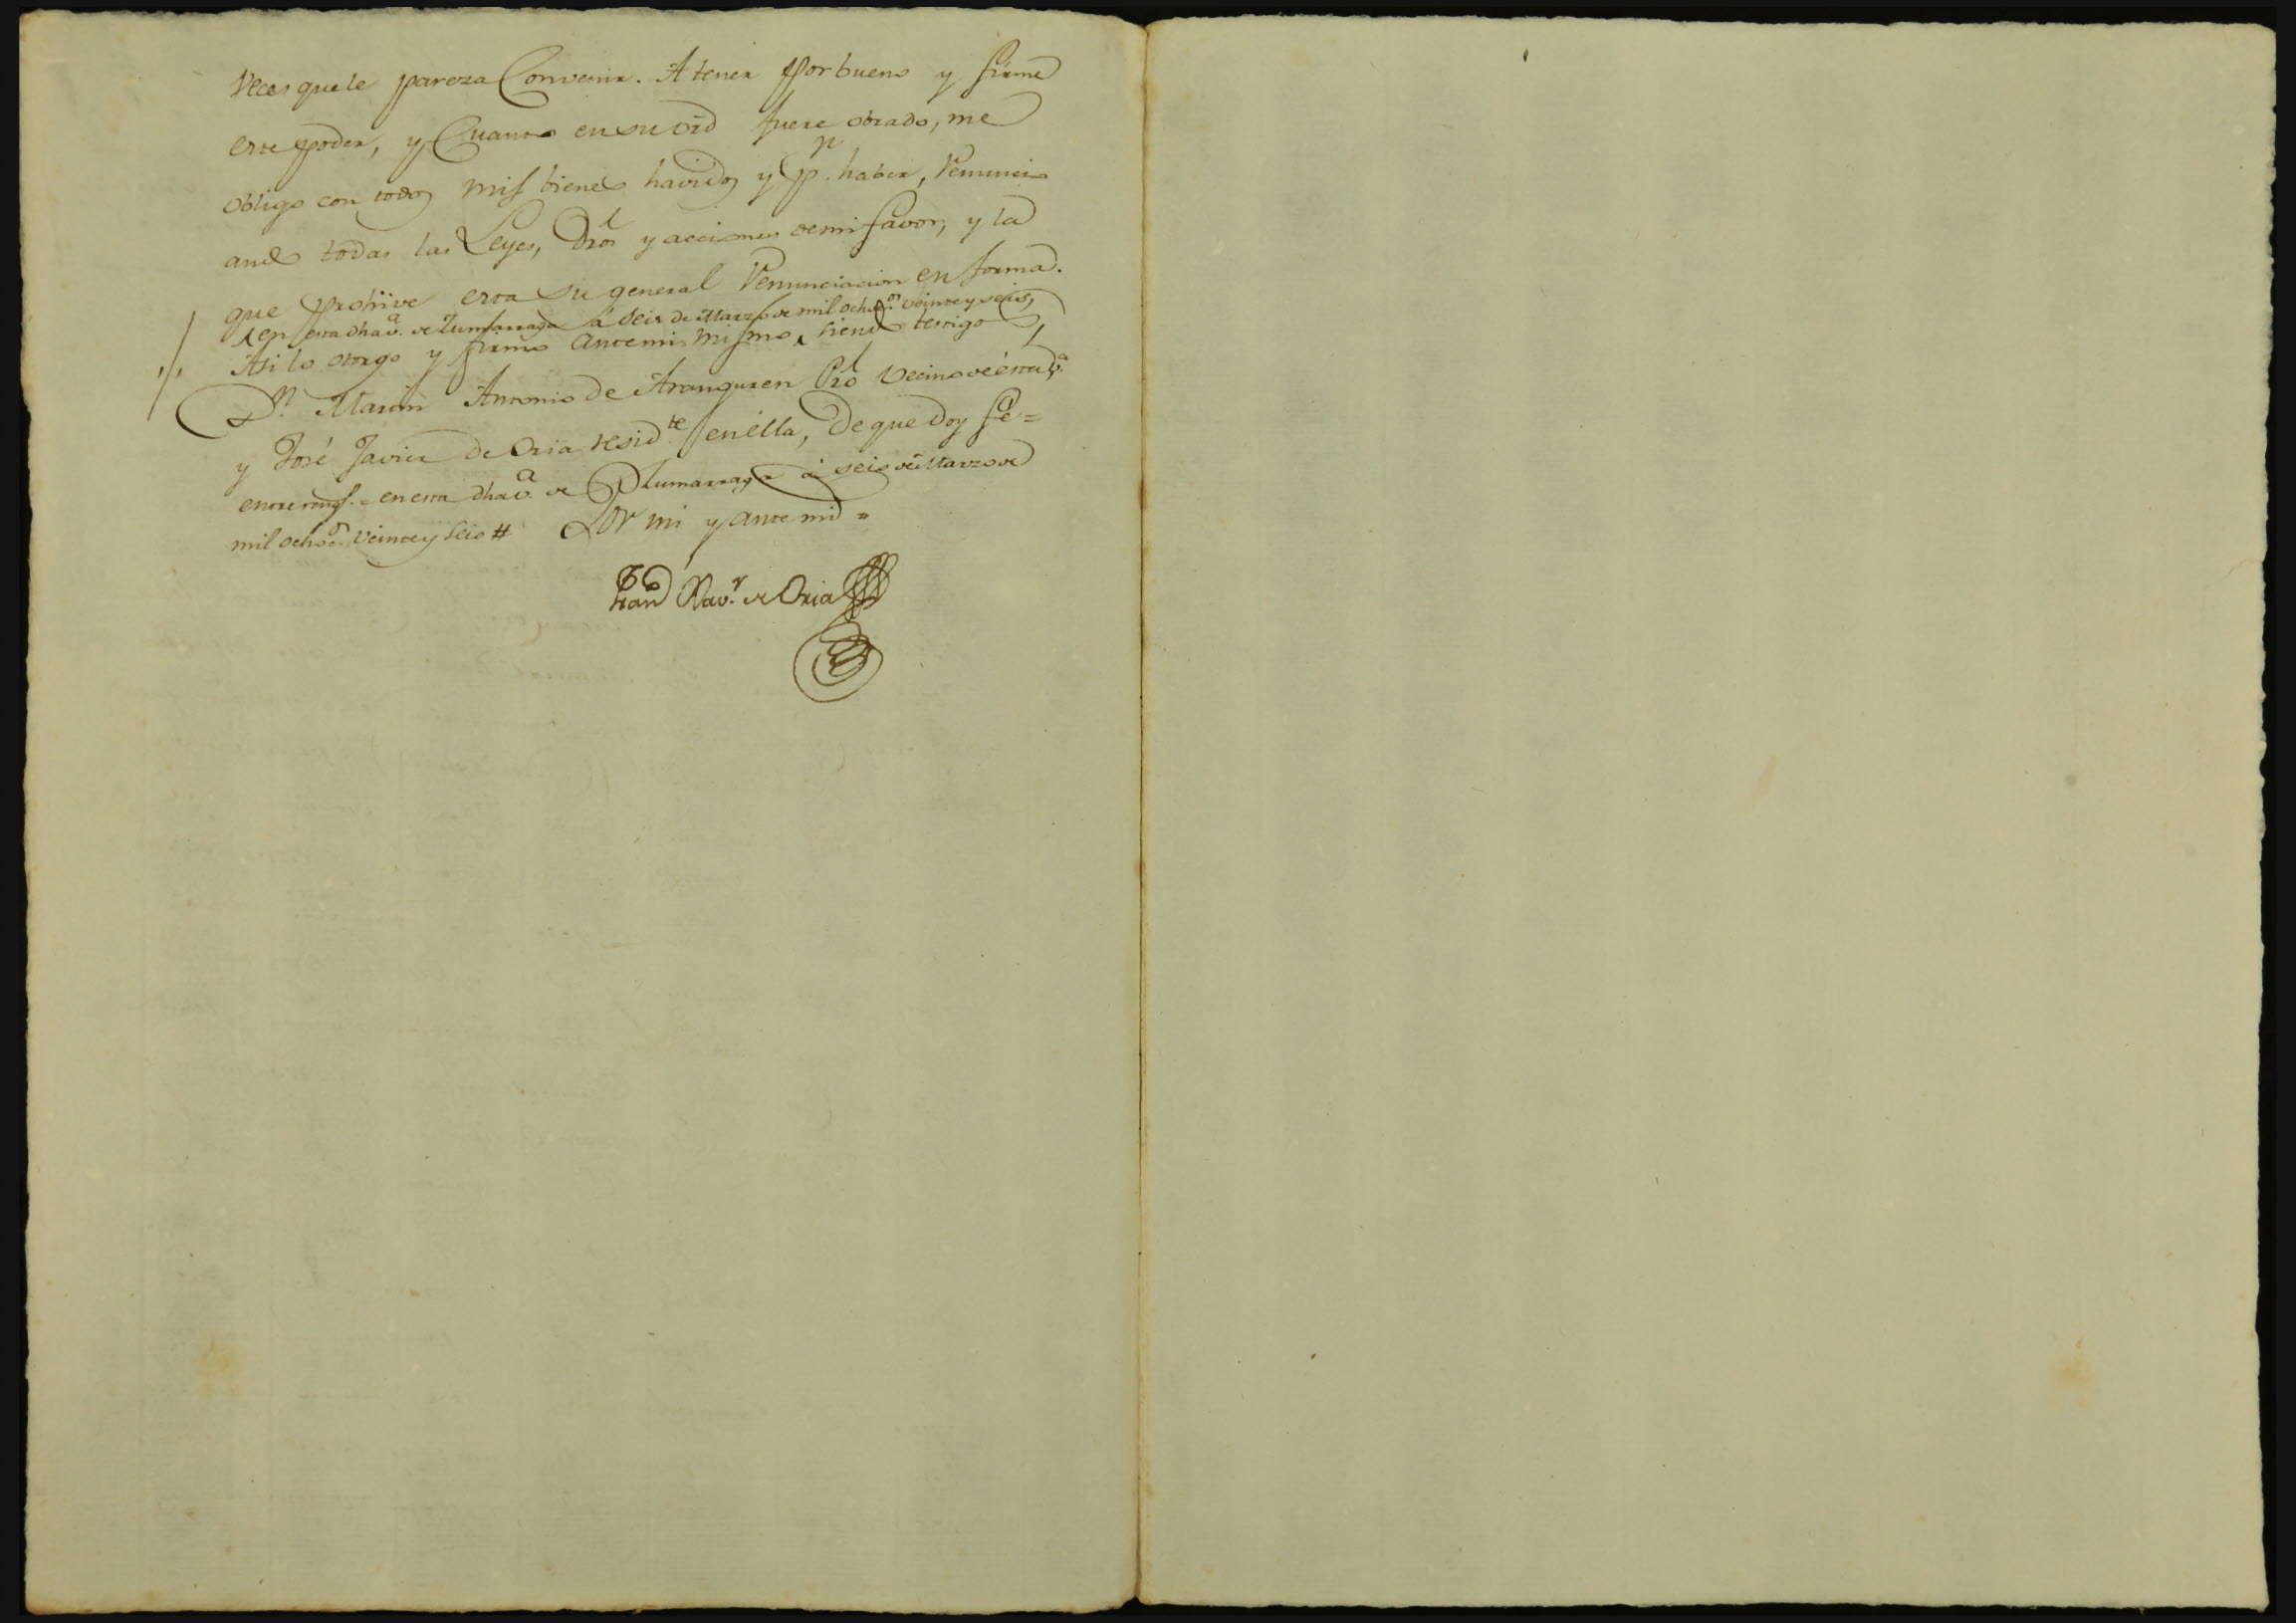 Veces que le pareza Convenir. A tener por bueno y firme
este poder, y Cuanto en su vrd fuere obrado, me
obligo con todos mis bienes havidos y pr. haber, Renuncio
andes todas las Leyes, Dros y acciones de mi favor, y la
que prohive esta su general Renunciacion en forma.
en esta dha va. de Zumarraga á seis de Marzo de mil ochos. veinte y seis,
Asi lo otorgo y firmo ante mi mismo, siendo testigos,
Dn. Martin Antonio de Aranguren Pro Vecino de ésta va.
y José Javier de Oria residte en élla, de que doy fé =
entrerengs. = en esta dha va. de Zumarraga á seis de Marzo de
mil ochos. veinte y seis # Por mi y ante mi =
Fran Xavr. de Oria